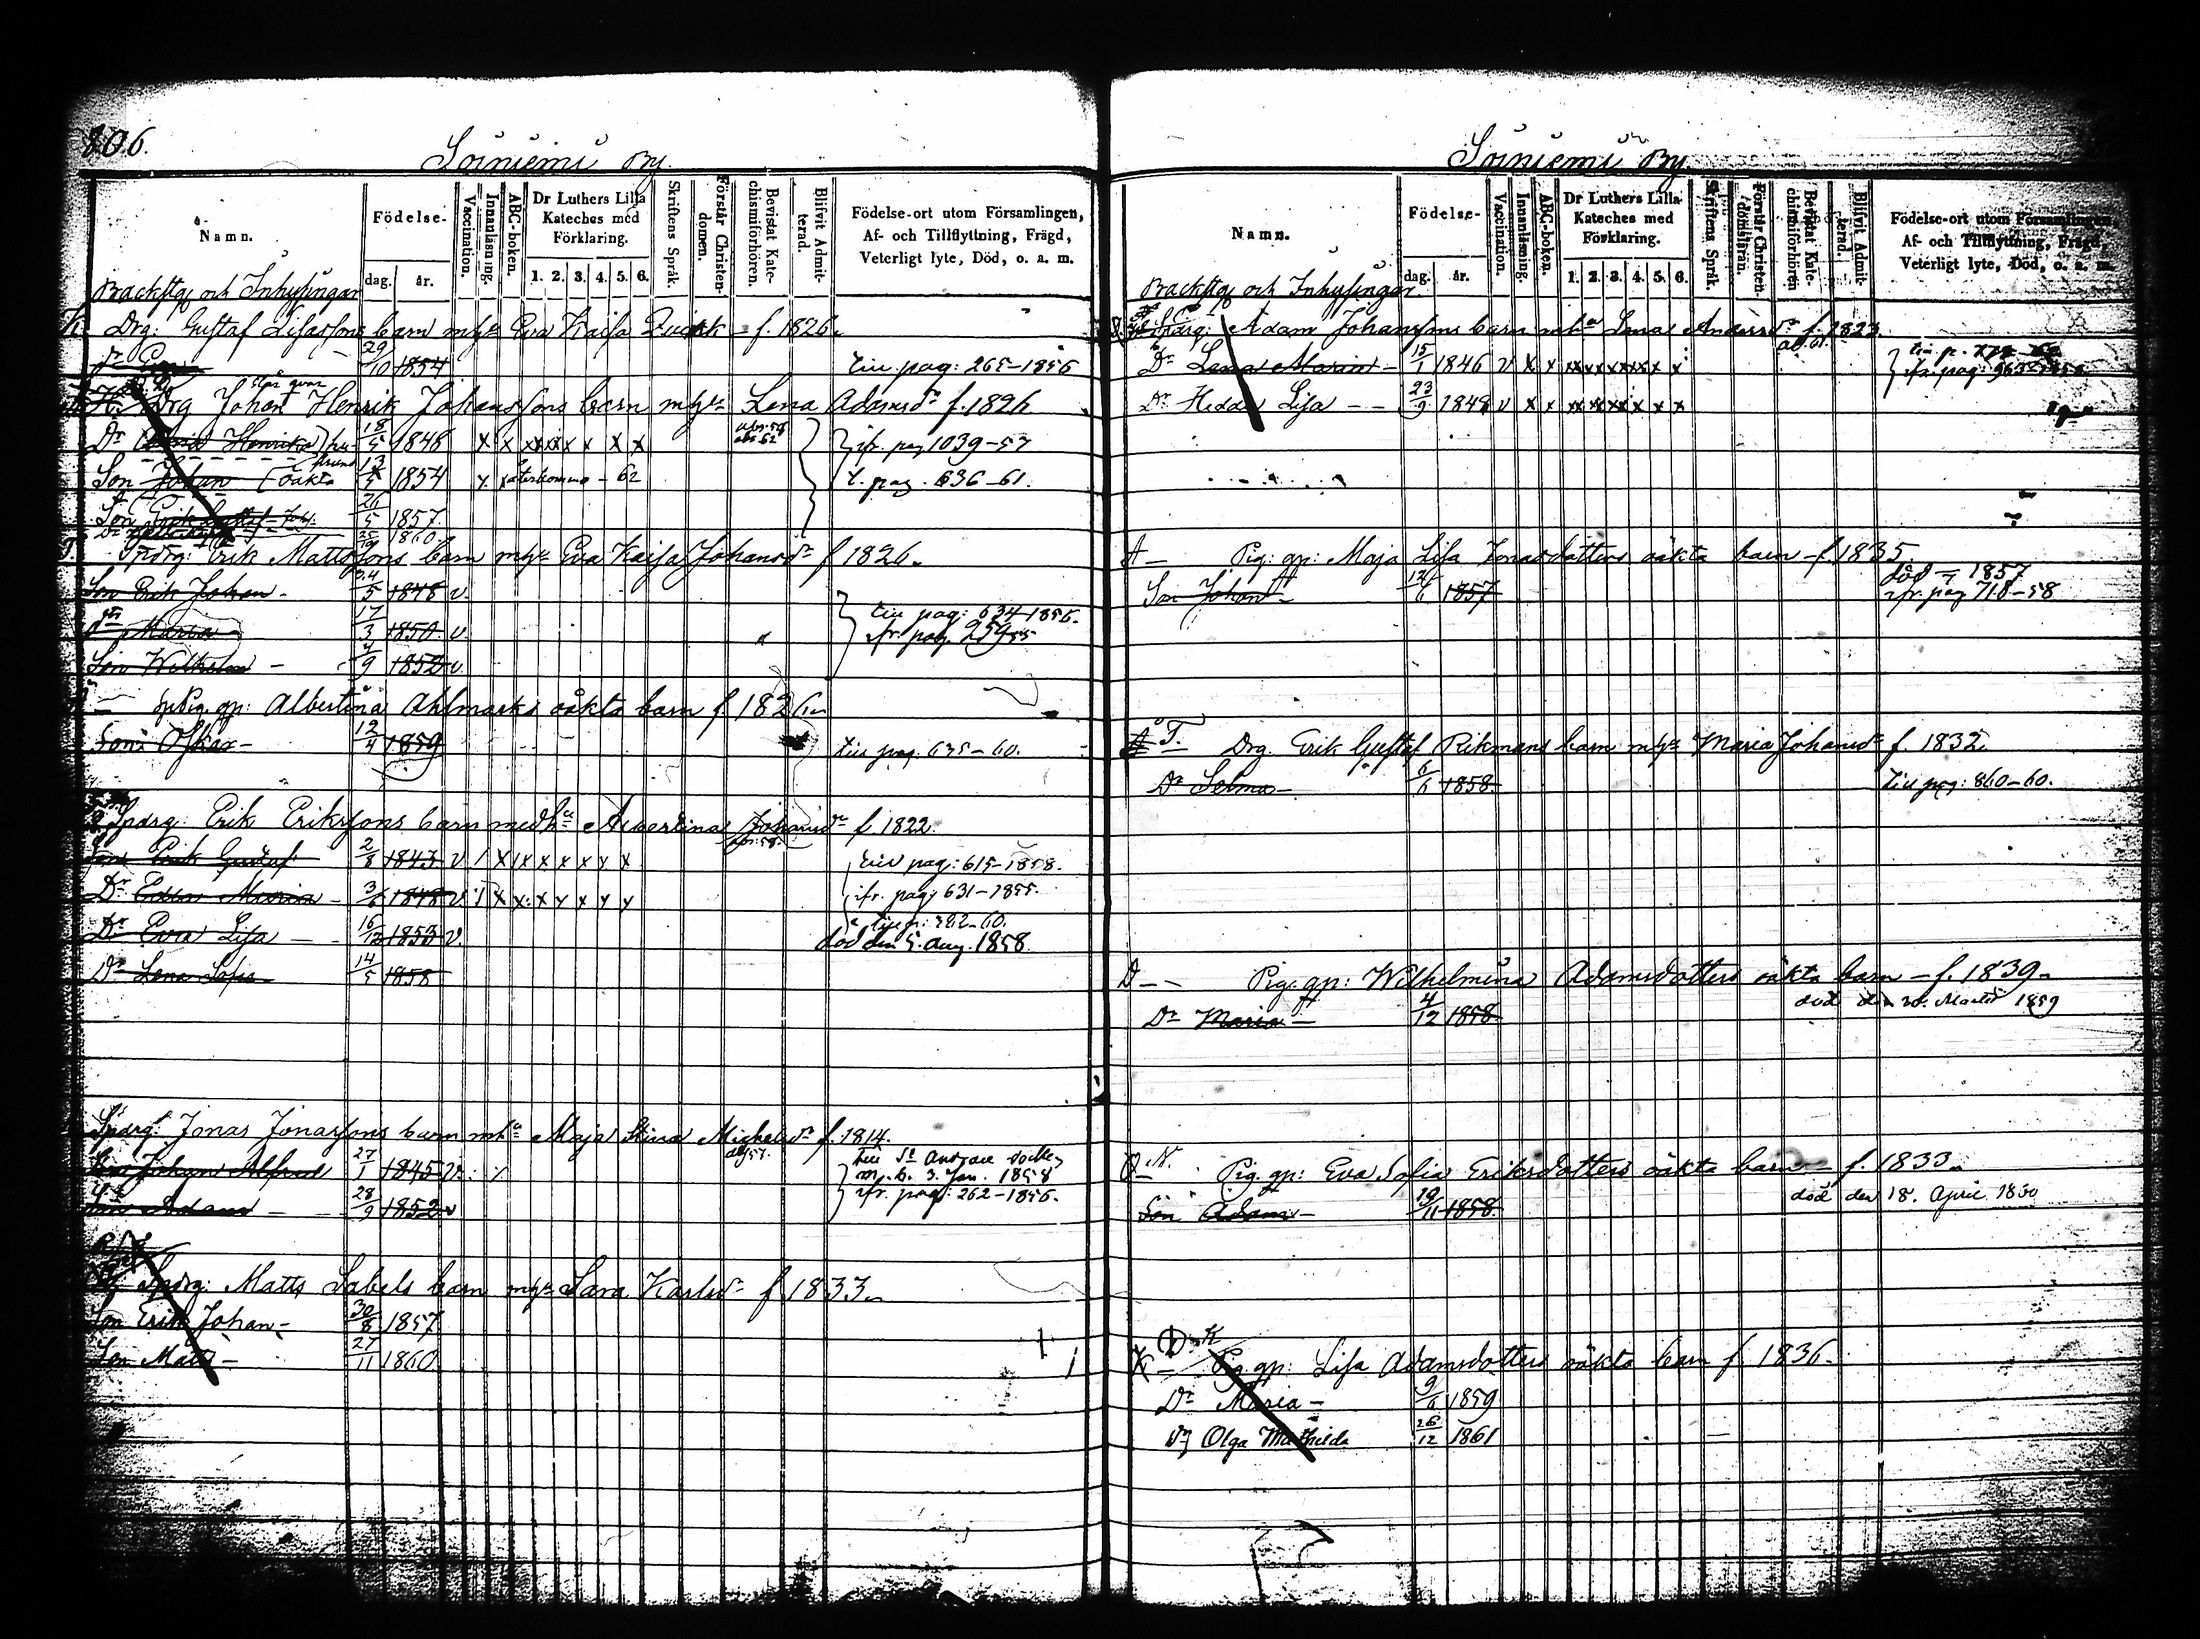 806.
Soiniemi By.
Namn.
Födelse-
dag. år.
Vaccination.
Innanläsning.
ABC-boken.
Dr Luthers Lilla Kateches med Förklaring.
1. 2. 3. 4. 5. 6.
Skriftens Språk.
Förstår Christendomen.
Bevistat Katechismiförhören.
Blifvit Admitterad.
Födelse-ort utom Församlingen, Af- och Tillflyttning, Frägd, Veterligt lyte, Död, o. a. m.
Backst och Inhysingar
Drg: Gustaf barn Eva Kaisa f. 1826.
29/10 1854 till pag: 265-1856
Drg Johan Henrik Johanssons barn Lena Adamsdr f. 1826
Dr Henrika 18/5 1848 x x x x x x x x x ifr. pag 1039-57
Son Johan oäkta 1854 x x återkomma - 62 t. pag. 636-61.
Son 26/5 1857.
Dr 1860
Spdrg: Erik Mattssons barn Eva Kaisa Johansdr f 1826.
Son Erik Johan - 24/5 1848 v.
Maria 17/3 1850. v. till pag: 634-1856.
Son Wilhelm - 4/9 1852 v. ifr. pag. 259-55
gp: Albertina Ahlmarks oäkta barn f 1826
Son Oskar - 12/4 1859 till pag. 635-60.
Spdrg: Erik Erikssons barn med h Albertina Johansdr f. 1822.
Son Erik Gustaf 2/8 1843 v / x x x x x x x till pag: 615-1858.
Dr Maria - 1848 v x x x x x x x ifr. pag: 631-1855.
till p: 382-60.
Dr Eva Lisa - 16/12 1853 v. död den 5. Aug. 1858.
Dr Lena Sofia 14/5 1858
Spdrg: Jonas Jonassons barn Maja Stina Michelsdr f. 1814.
Son Johan Alfred 27/1 1845 v. till St m. b. 3. Jan. 1858
Adam - 28/9 1852 v ifr. pag: 262-1856.
Spdrg: Matts Sabels barn Sara Karlsdr f 1833.
Son Erik Johan - 30/8 1857
Son Matts - 27/11 1860
Soiniemi By
Namn.
Födelse-
dag. år.
Vaccination.
Innanläsning.
ABC-boken.
Dr Luthers Lilla Kateches med Förklaring.
1. 2. 3. 4. 5. 6.
Skriftens Språk.
Förstår Christendomen.
Bevistat Katechismiförhören
Blifvit Admitterad.
Födelse-ort utom Församlingen, Af- och Tillflyttning, Frägd, Veterligt lyte, Död, o. a. m.
Backst och Inhysingar
Spdrg: Adam Johanssons barn Lena Andersdr f. 1823.
Dr Lena Maria - 15/1 1846 v x x x x x x x x x ifr. pag: 963
Dr Hedda Lisa - - 23/9 1849 v x x x x x x x x x
A - Pig: gp: Maja Lisa Jonasdotters oäkta barn - f. 1835.
död 1857
Son Johan - 1857 ifr. pag 718-58
T. Drg. Erik Gustaf Rikmans barn Maria Johansdr f. 1832.
Dr Selma - 6/6 1858 till pag: 860-60.
D - - Pig: gp: Wilhelmina Adamsdotters oäkta barn - f. 1839.
Dr Maria - 4/12 1858 död den 20. Martii 1859
Pig. gp: Eva Sofia Eriksdotters oäkta barn - f. 1833.
Son Adam - 19/11 1858 död den 18. April 1860
D. K
K - Pig gp: Lisa Adamsdotters oäkta barn f. 1836.
Dr Maria - 9/6 1859
Olga Mathilda 26/12 1861